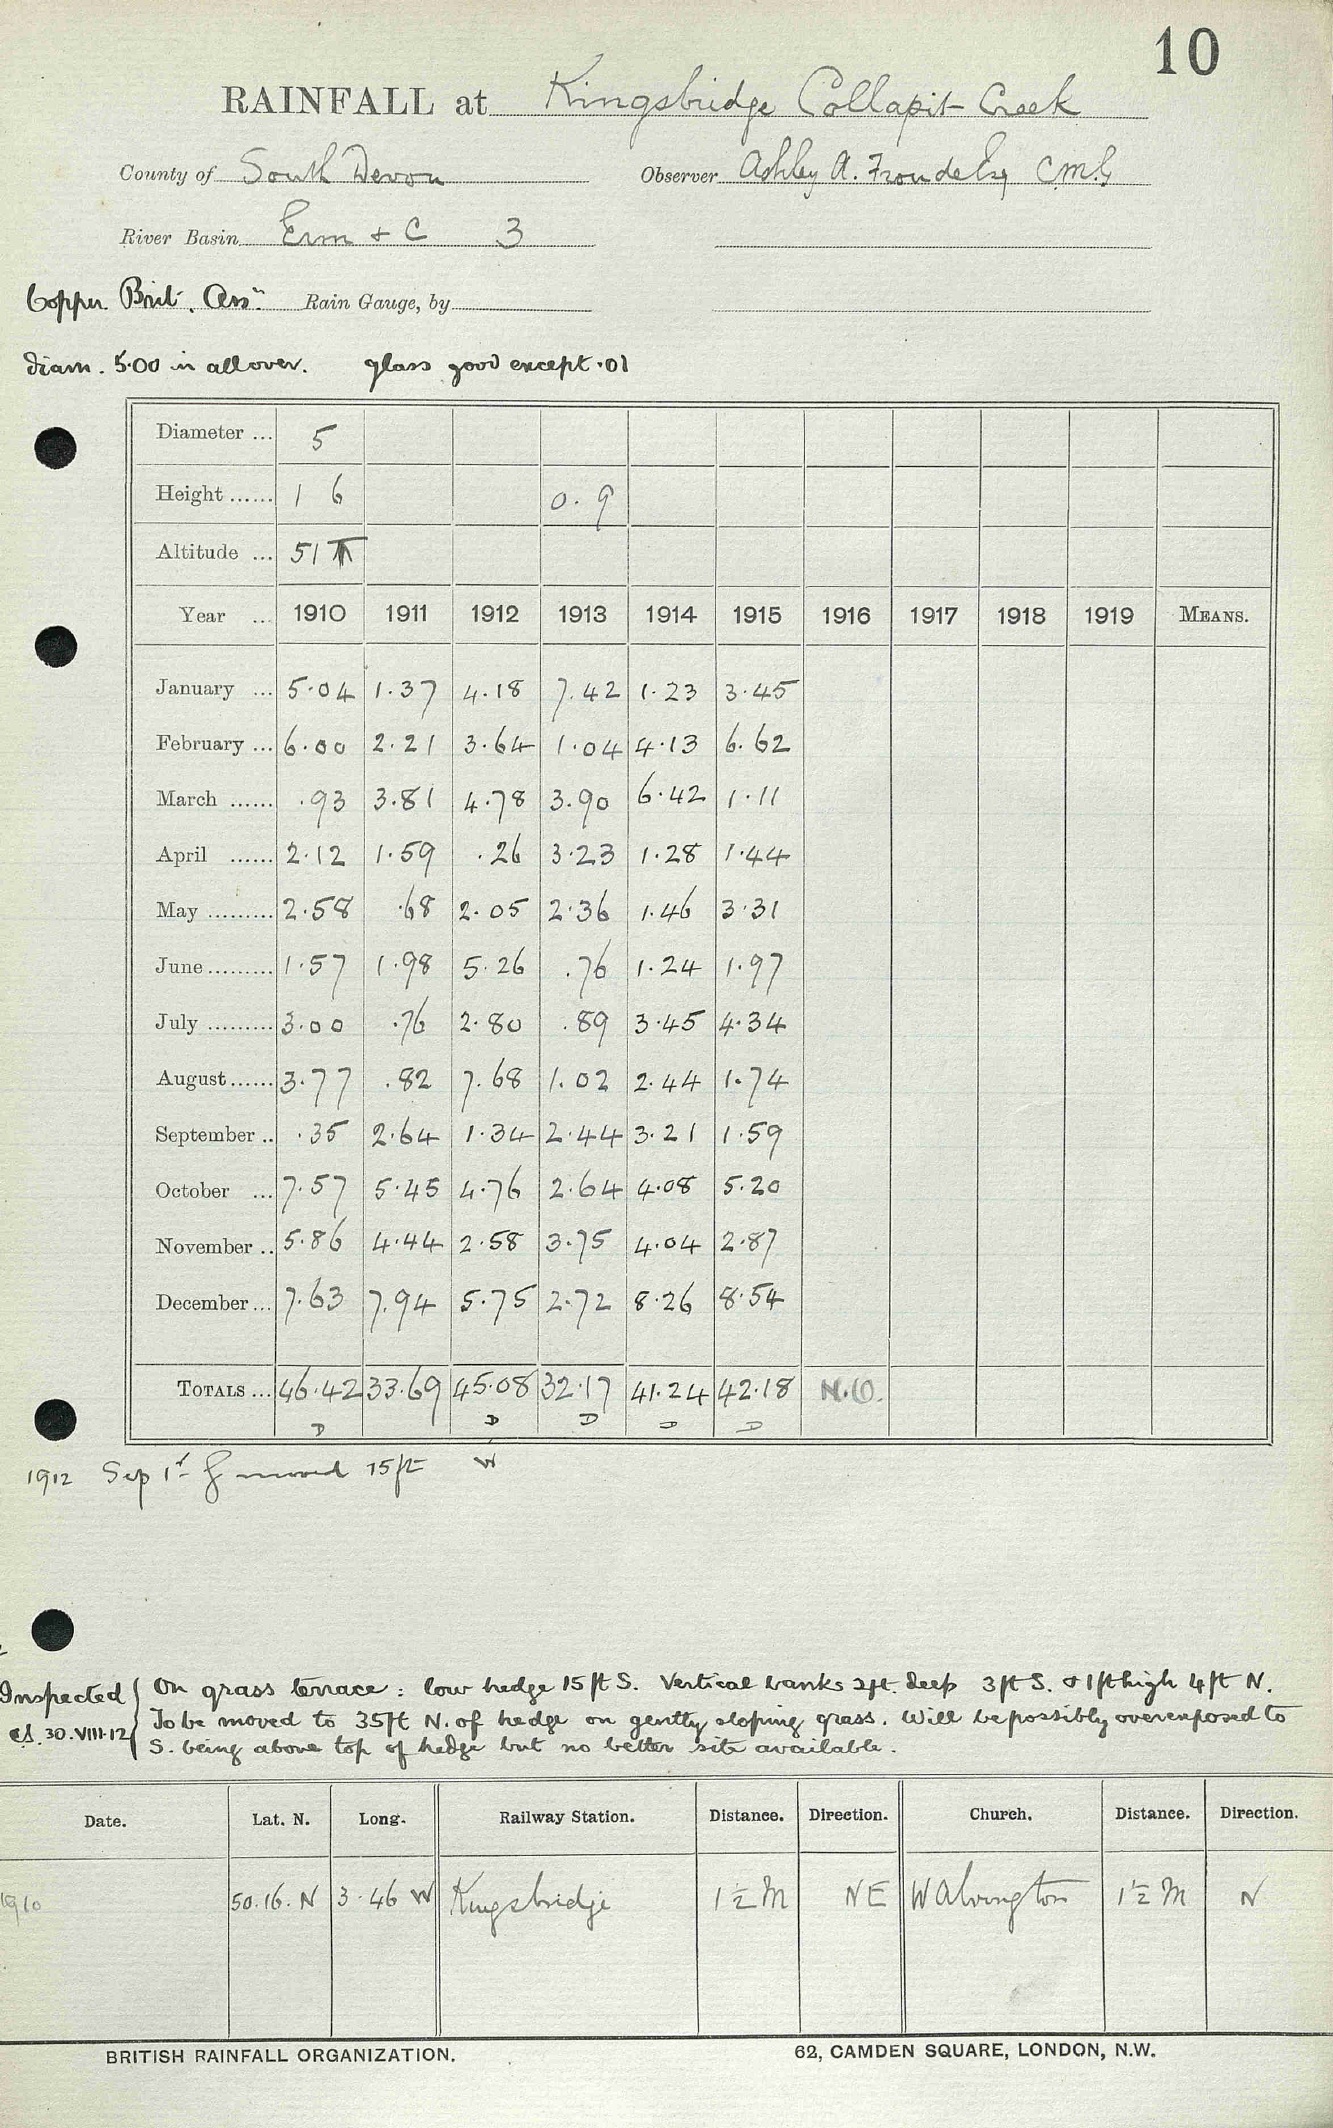 10
RAINFALL at Kingsbridge Collapit Creek
County of South Devon Observer Ashley A. Froude Esq CMG
River Basin Erm & C 3
Copper Brit. Assn Rain Gauge, by
diam. 5.00 in all over. glass good except .01
Diameter ... 5
Height ...... 1 6 0.9
Altitude ... 51
Year ... 1910 1911 1912 1913 1914 1915 1916 1917 1918 1919 MEANS.
January ... 5.04 1.37 4.18 7.42 1.23 3.45
February ... 6.00 2.21 3.64 1.04 4.13 6.62
March ...... .93 3.81 4.78 3.90 6.42 1.11
April ...... 2.12 1.59 .26 3.23 1.28 1.44
May ......... 2.58 .68 2.05 2.36 1.46 3.31
June ......... 1.57 1.98 5.26 .76 1.24 1.97
July ......... 3.00 .76 2.80 .89 3.45 4.34
August ...... 3.77 .82 7.68 1.02 2.44 1.74
September .. .35 2.64 1.34 2.44 3.21 1.59
October ... 7.57 5.45 4.76 2.64 4.08 5.20
November .. 5.86 4.44 2.58 3.75 4.04 2.87
December ... 7.63 7.94 5.75 2.72 8.26 8.54
TOTALS ... 46.42 33.69 45.08 32.17 41.24 42.18 N.O.
D D D D D
1912 Sep 1st g moved 15 ft W
Inspected On grass terrace: low hedge 15 ft S. Vertical banks 2ft. deep 3 ft S. & 1 ft high 4 ft N.
30.VIII.12 To be moved to 35 ft N. of hedge on gently sloping grass. Will be possibly overexposed to
S. being above top of hedge but no better site available.
Date. Lat. N. Long. Railway Station. Distance. Direction. Church. Distance. Direction.
1910 50.16. N 3.46 W Kingsbridge 1½ M NE W Alvington 1½ M N
BRITISH RAINFALL ORGANIZATION. 62, CAMDEN SQUARE, LONDON, N.W.